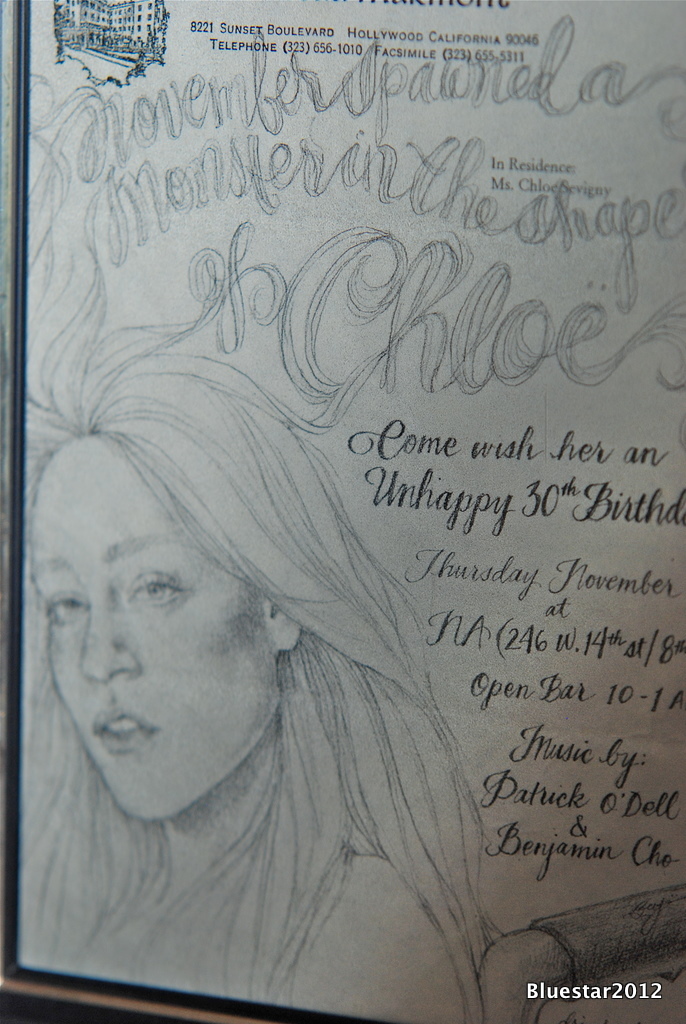 8221 SUNSET BOULEVARD HOLLYWOOD CALIFORNIA 90046
TELEPHONE (323) 656-1010 FACSIMILE (323) 655-5311
November spawned a
monster in the shape
In Residence:
Ms. Chloe Sevigny
of Chloë
Come wish her an
Unhappy 30th Birthda
Thursday November
at
NA (246 W. 14th st/8th
Open Bar 10-1 A
Music by:
Patrick O'Dell
&
Benjamin Cho
Bluestar2012